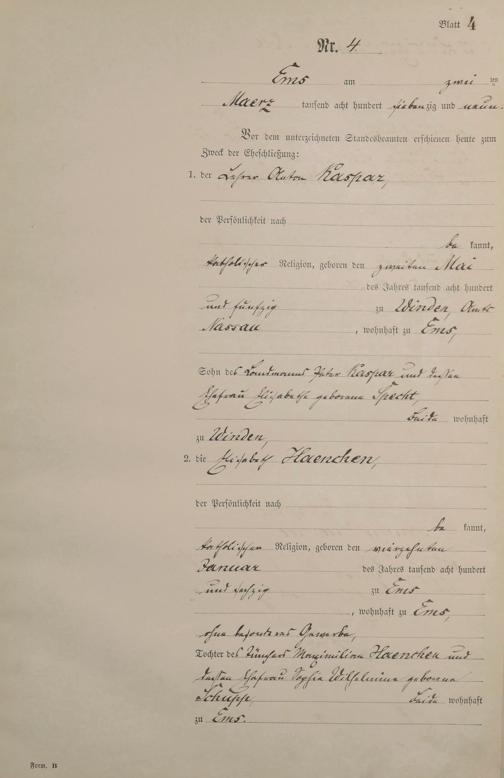 Blatt 4
Nr. 4.
Ems am zwei ten
Maerz tausend acht hundert siebenzig und neun.
Vor dem unterzeichneten Standesbeamten erschienen heute zum
Zweck der Eheschließung:
1. der Lehrer Anton Kaspar,
der Persönlichkeit nach
be kannt,
katholischer Religion, geboren den zweiten Mai
des Jahres tausend acht hundert
und fünfzig zu Winden, Amts
Nassau, wohnhaft zu Ems,
Sohn des Landmanns Peter Kaspar und dessen
Ehefrau Elisabetha geborene Specht,
beide wohnhaft
zu Winden,
2. die Elisabeth Haenchen,
der Persönlichkeit nach
be kannt,
katholischer Religion, geboren den vierzehnten
Januar des Jahres tausend acht hundert
und sechzig zu Ems
, wohnhaft zu Ems,
ohne besonderes Gewerbe,
Tochter des Tünchers Maximilian Haenchen und
dessen Ehefrau Sophia Wilhelmine geborene
Schupp, beide wohnhaft
zu Ems.
Form. B